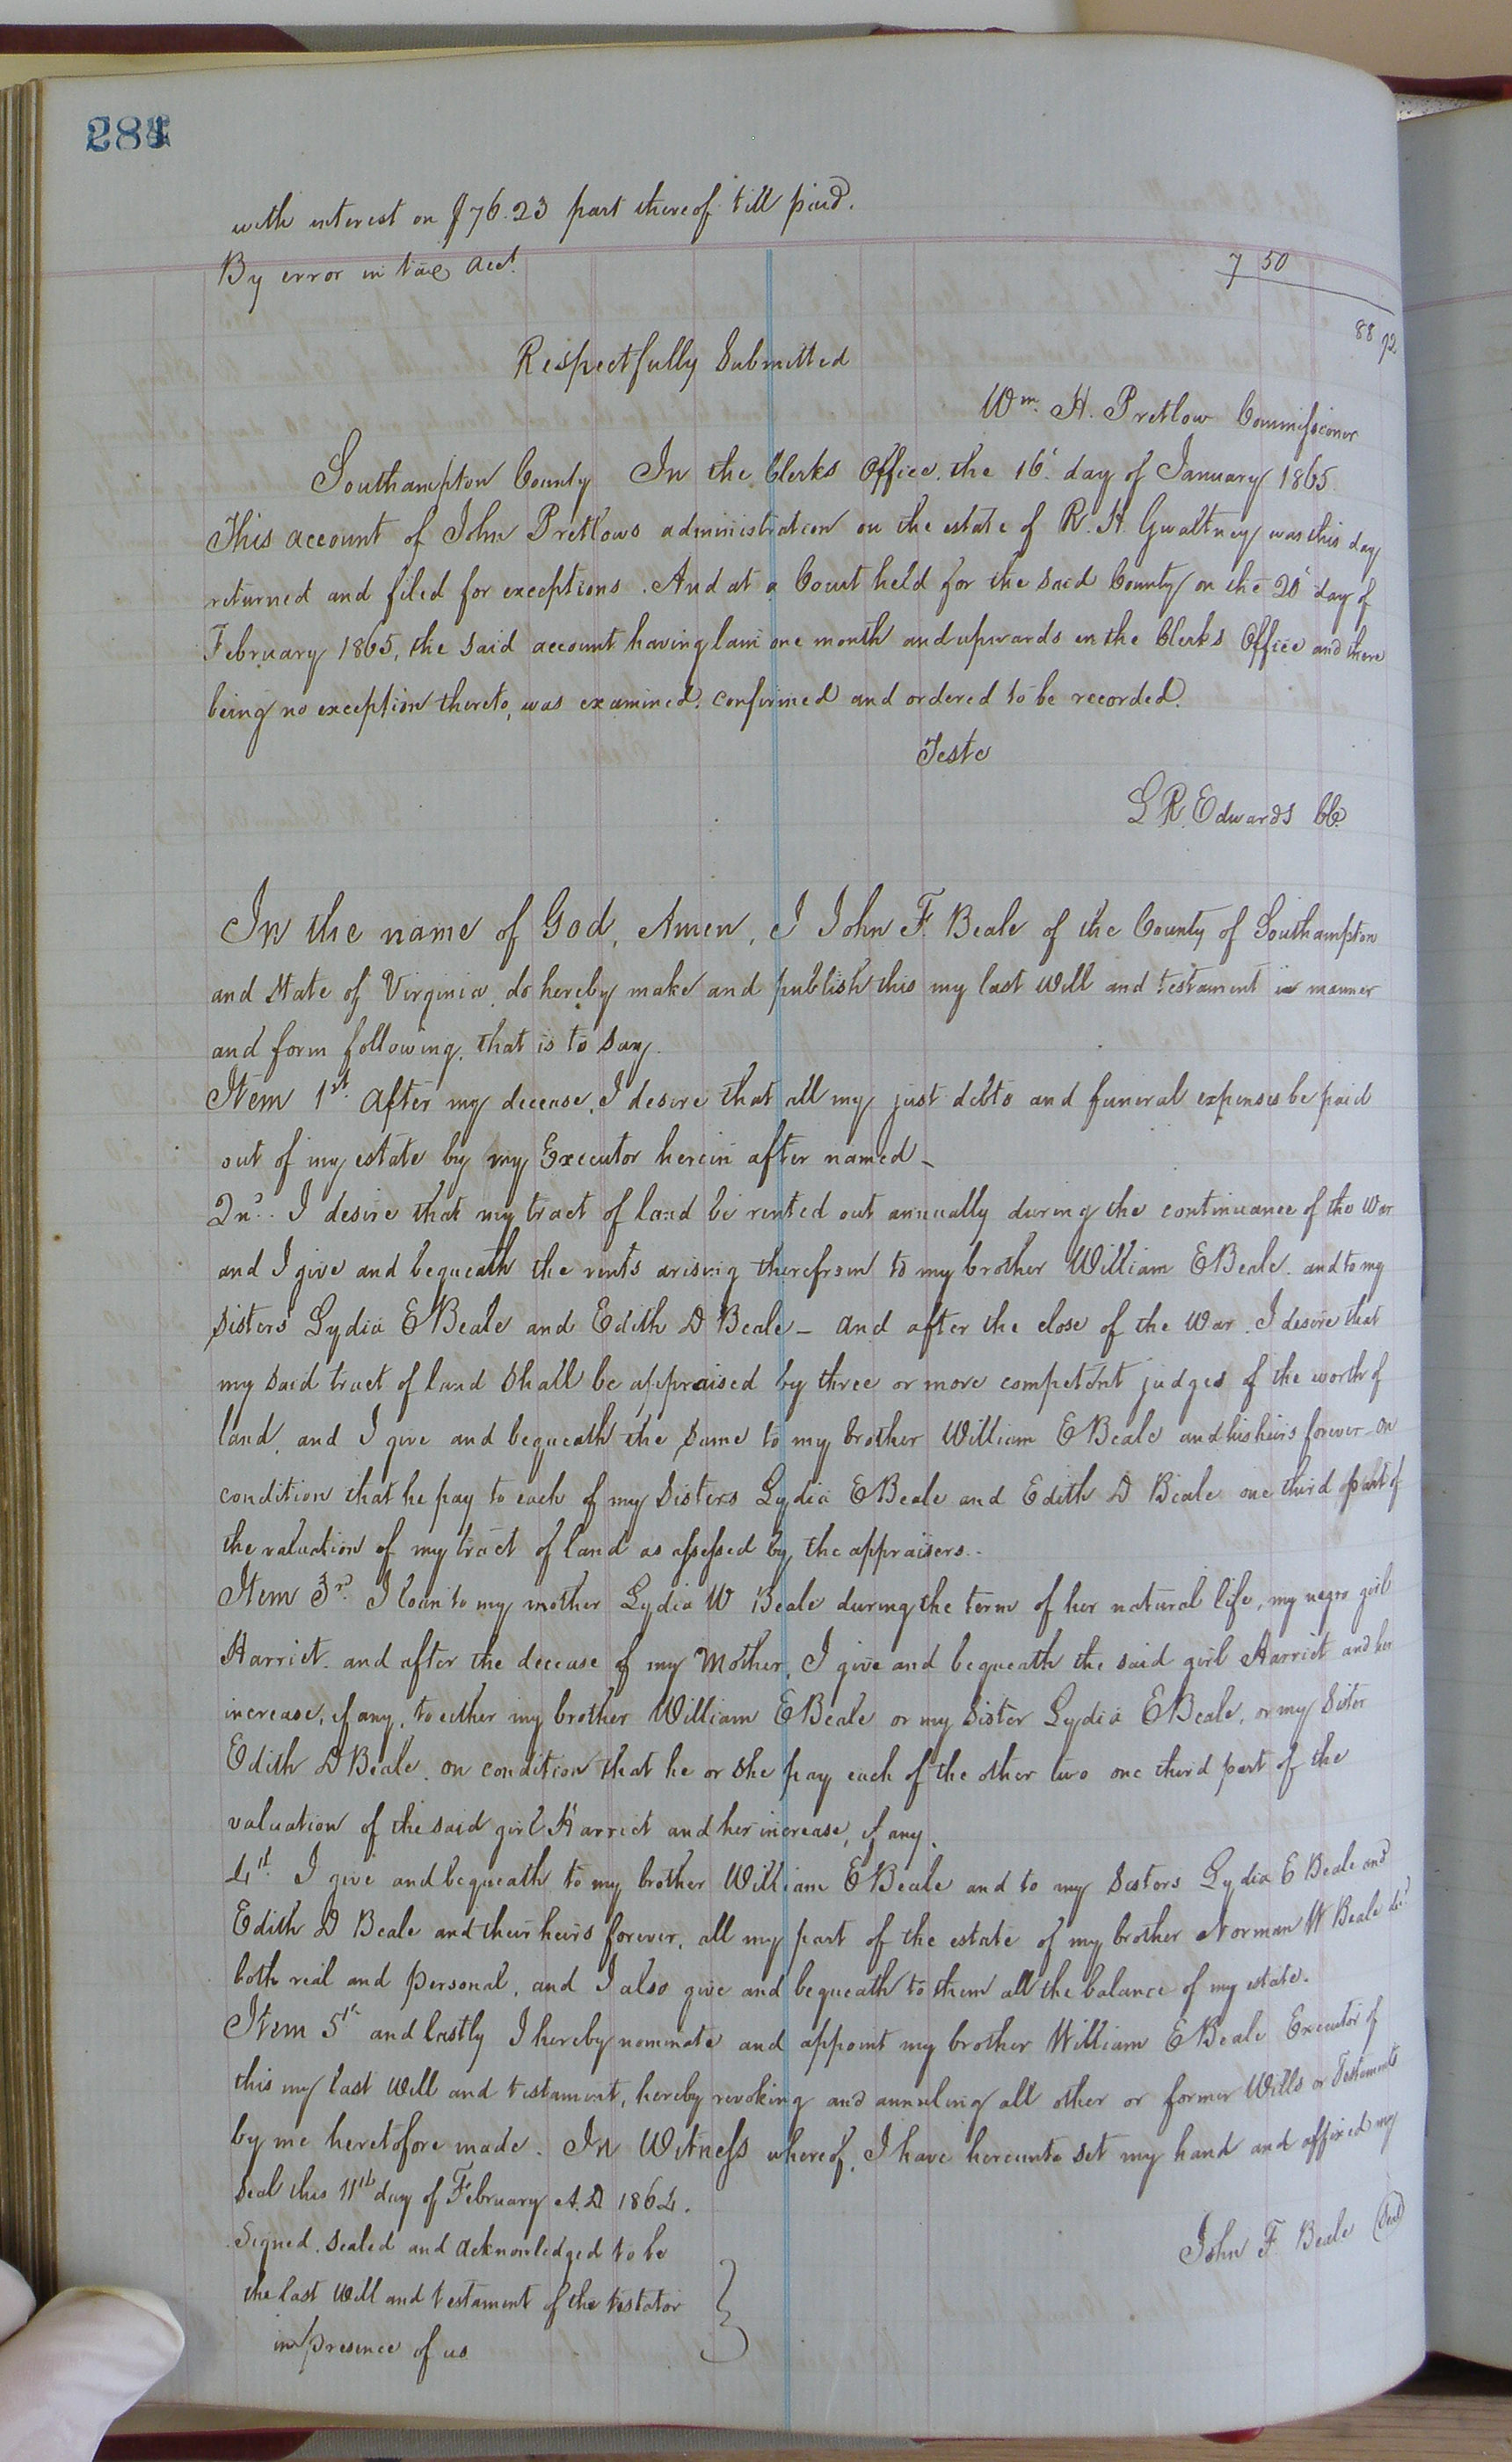 284
with interest on $76.23 part thereof till paid.
By error in tax acct. 7 50
88 92
Respectfully Submitted
Wm. H. Pretlow Commissioner
Southampton County In the Clerks Office, the 16' day of January 1865.
This account of John Pretlows administration on the estate of R. H. Gwaltney was this day
returned and filed for exceptions. And at a Court held for the said County on the 20' day of
February 1865, the said account having lain one month and upwards in the Clerks Office and there
being no exception thereto, was examined, confirmed and ordered to be recorded.
Teste
L R. Edwards CC.
In the name of God, Amen, I John F. Beale of the County of Southampton
and State of Virginia, do hereby make and publish this my last Will and testament in manner
and form following, that is to say.
Item 1st. After my decease, I desire that all my just debts and funeral expenses be paid
out of my estate by my Executor herein after named -
2nd. I desire that my tract of land be rented out annually during the continuance of the War
and I give and bequeath the rents arising therefrom to my brother William E Beale, and to my
Sisters Lydia E Beale and Edith D Beale - and after the close of the War. I desire that
my said tract of land shall be appraised by three or more competent judges of the worth of
land, and I give and bequeath the same to my brother William E Beale and his heirs forever - on
condition that he pay to each of my Sisters Lydia E Beale and Edith D Beale one third part of
the valuation of my tract of land as assessed by the appraisers. -
Item 3rd. I loan to my mother Lydia W Beale during the term of her natural life, my negro girl
Harriet. and after the decease of my Mother, I give and bequeath the said girl Harriet and her
increase, if any, to either my brother William E Beale or my Sister Lydia E Beale, or my Sister
Edith D Beale, on condition that he or she pay each of the other two one third part of the
valuation of the said girl Harriet and her increase, if any.
4th. I give and bequeath to my brother William E Beale and to my Sisters Lydia E Beale and
Edith D Beale and their heirs forever, all my part of the estate of my brother Norman W Beale decd
both real and personal, and I also give and bequeath to them all the balance of my estate.
Item 5th and lastly I hereby nominate and appoint my brother William E Beale Executor of
this my last Will and testament, hereby revoking and annuling all other or former Wills or Testaments
by me heretofore made. In Witness whereof, I have hereunto set my hand and affixed my
Seal this 11th day of February A.D 1864.
John F. Beale (Seal)
Signed, Sealed and acknowledged to be
the last Will and testament of the testator
in presence of us